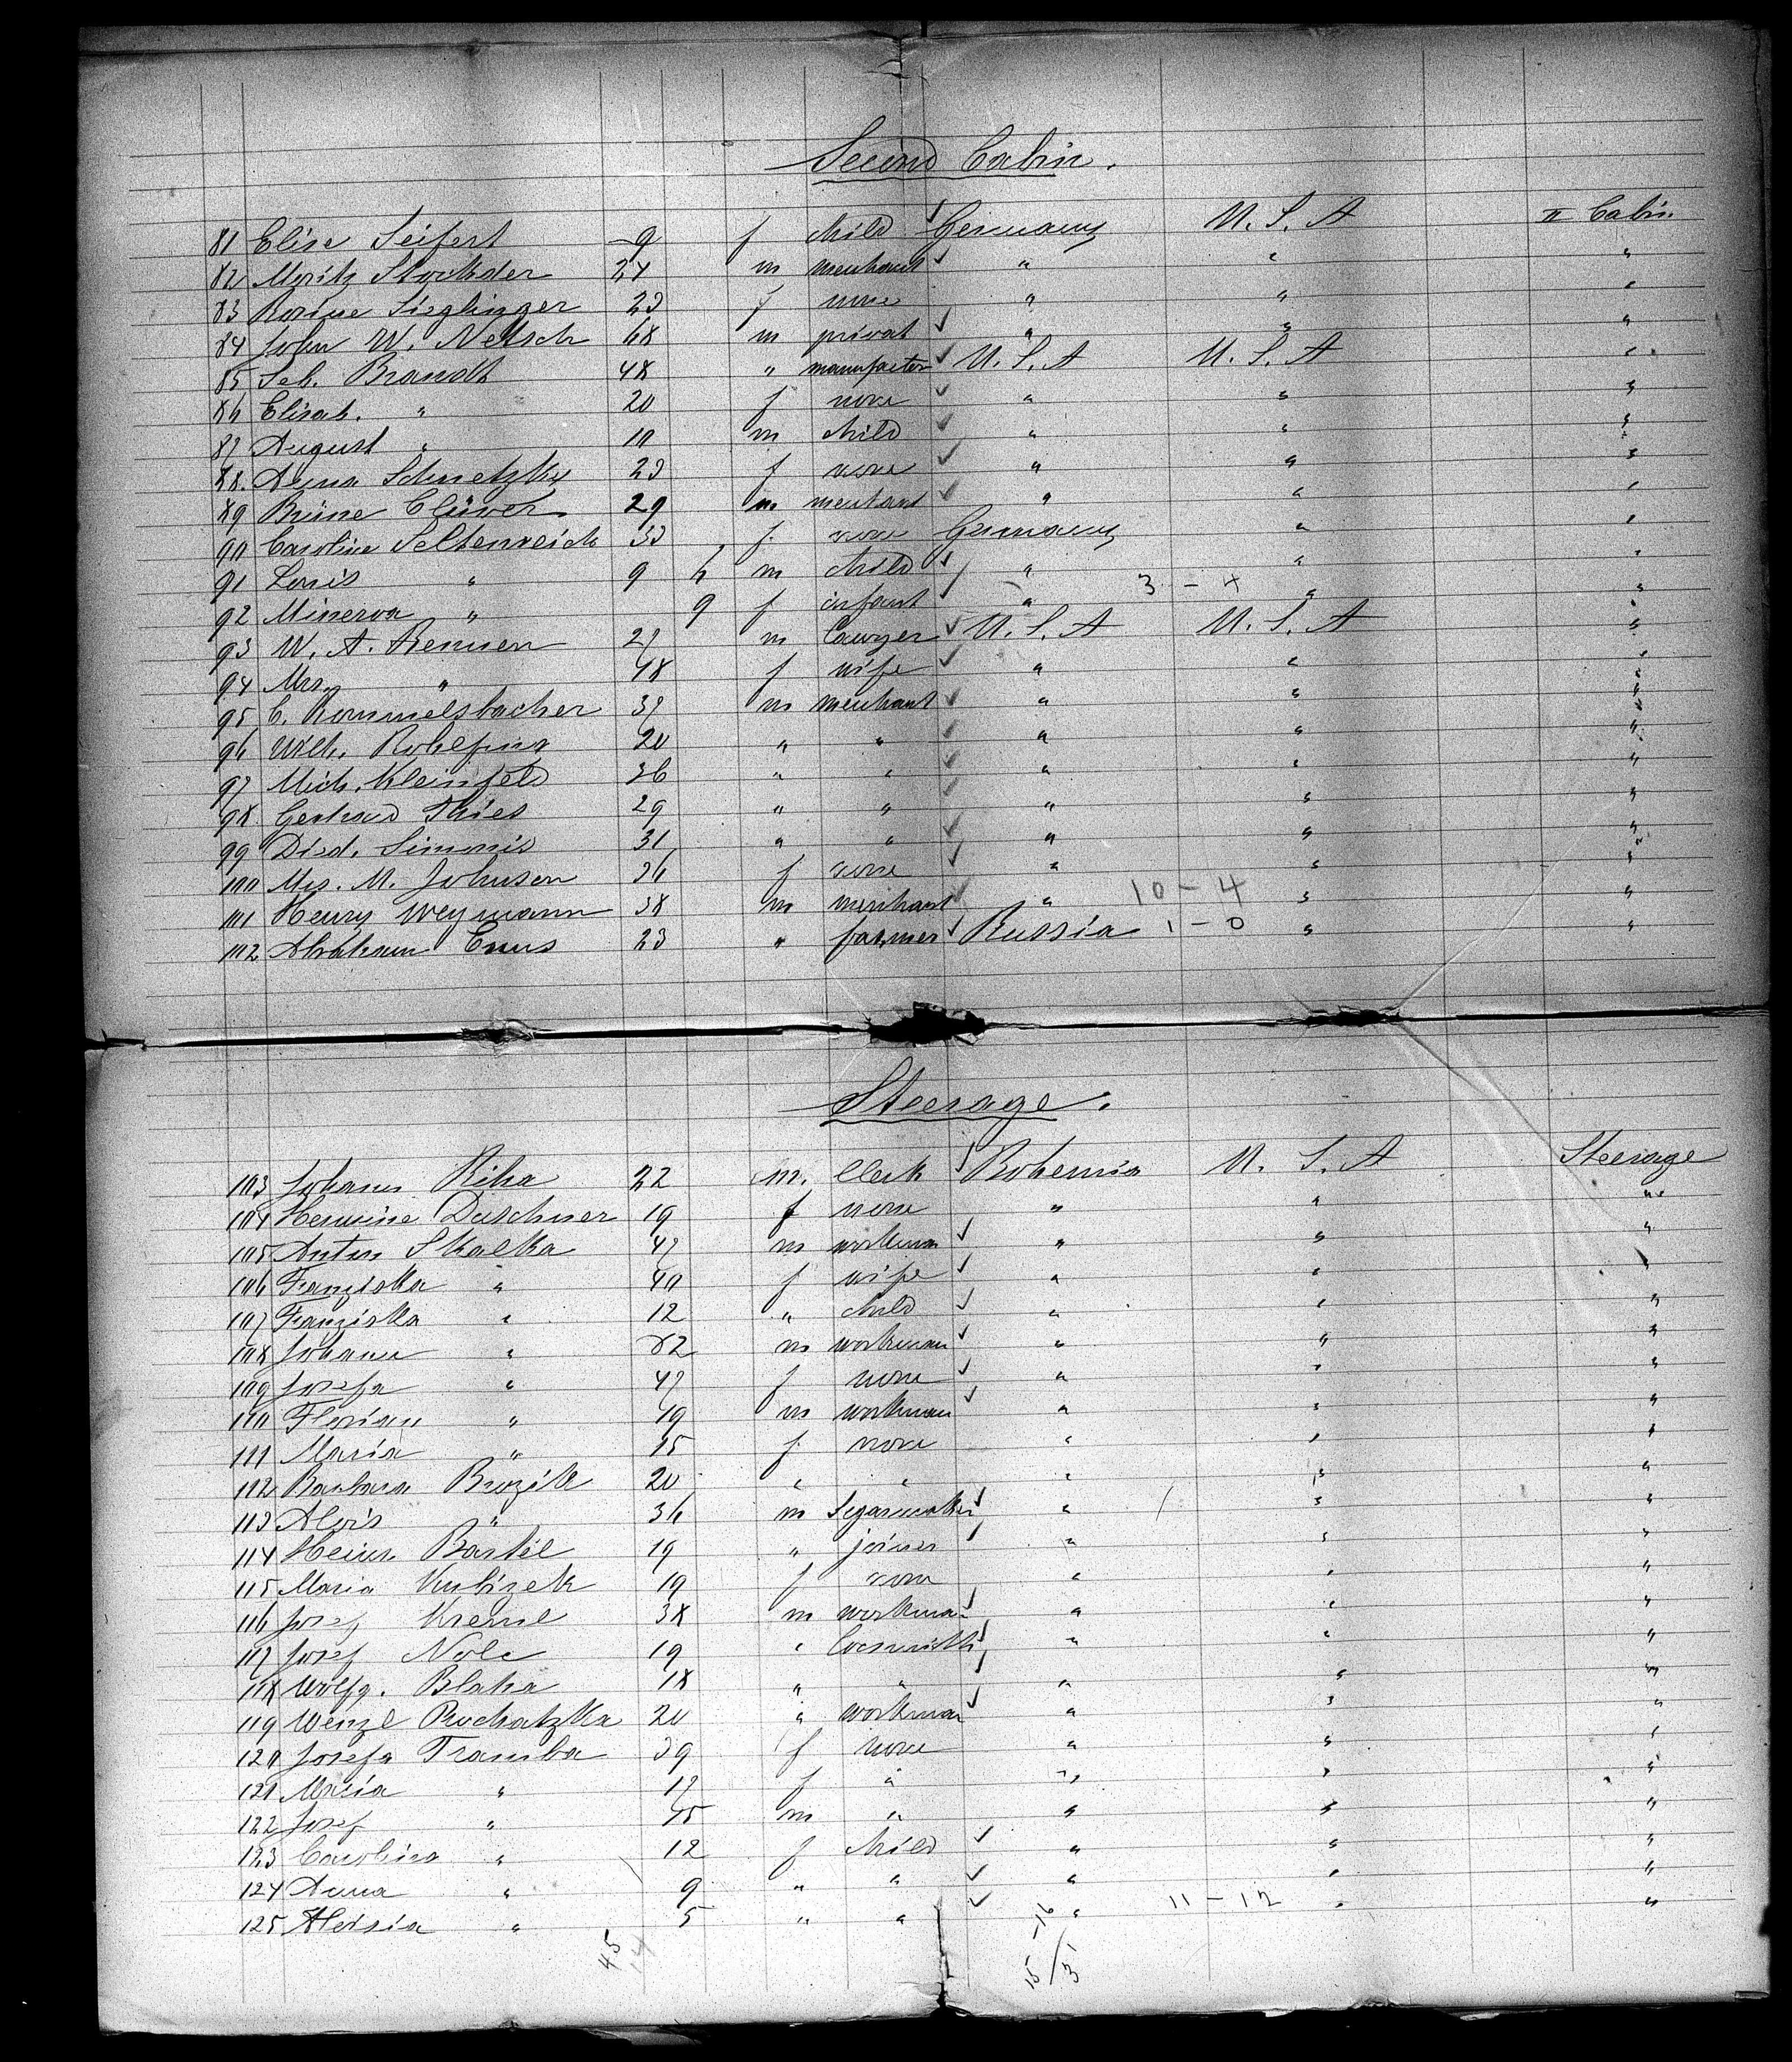 Second Cabin.
81 Elise Seifert 9 f child Germany U. S. A II Cabin
82 Moritz Stockder 24 m merchant " " "
83 Rosine Sieglinger 23 f none " " "
84 John W. Netsch 68 m privat " " "
85 Seb. Brandt 48 " manufactor U. S. A U. S. A "
86 Elisab. " 20 f none " " "
87 August " 10 m child " " "
88. Anna Schnetzky 23 f none " " "
89 Brüne Clüver 29 m merchant " " "
90 Caroline Seltenreich 33 f none Germany " "
91 Louis " 9 6 m child " " "
92 Minerva " 9 f infant " 3 - x " "
93 W. A. Remsen 27 m Lawyer U. S. A U. S. A "
94 Mrs. " 18 f wife " " "
95 C. Rommelsbacher 37 m merchant " " "
96 Wilh. Rohlfing 20 " " " " "
97 Mich. Kleinfeld 36 " " " " "
98 Gertraud Thies 29 " " " " "
99 Died. Simonis 31 " " " " "
100 Mrs. M. Johnson 36 f none " " "
101 Henry Weymann 38 m merchant " 10 - 4 " "
102 Abraham Enns 23 " farmer Russia 1 - 0 " "
Steerage.
103 Johann Riha 22 m. Clerk Bohemia U. S. A Steerage
104 Hermine Daschner 19 f none " " "
105 Anton Skalka 47 m workman " " "
106 Franziska " 40 f wife " " "
107 Franziska " 12 " child " " "
108 Johann " 82 m workman " " "
109 Josefa " 47 f none " " "
110 Florian " 19 m workman " " "
111 Maria " 15 f none " " "
112 Barbara Brozik 20 " " " " "
113 Alois " 36 m Segarmaker " " "
114 Heinr. Bartel 19 " joiner " " "
115 Maria Kubizek 19 f none " " "
116 Josef Kreml 38 m workman " " "
117 Josef Nole 19 " Locsmith " " "
118 Wolfg. Blaha 18 " " " " "
119 Wenzl Puchatzka 20 " workman " " "
120 Josefa Tramba 39 f none " " "
121 Maria " 17 f " " " "
122 Josef " 15 m " " " "
123 Carolina " 12 f child " " "
124 Anna " 9 " " " " "
125 Aloisia " 5 " " " 11 - 12 " "
45 14 15 - 16 / 31